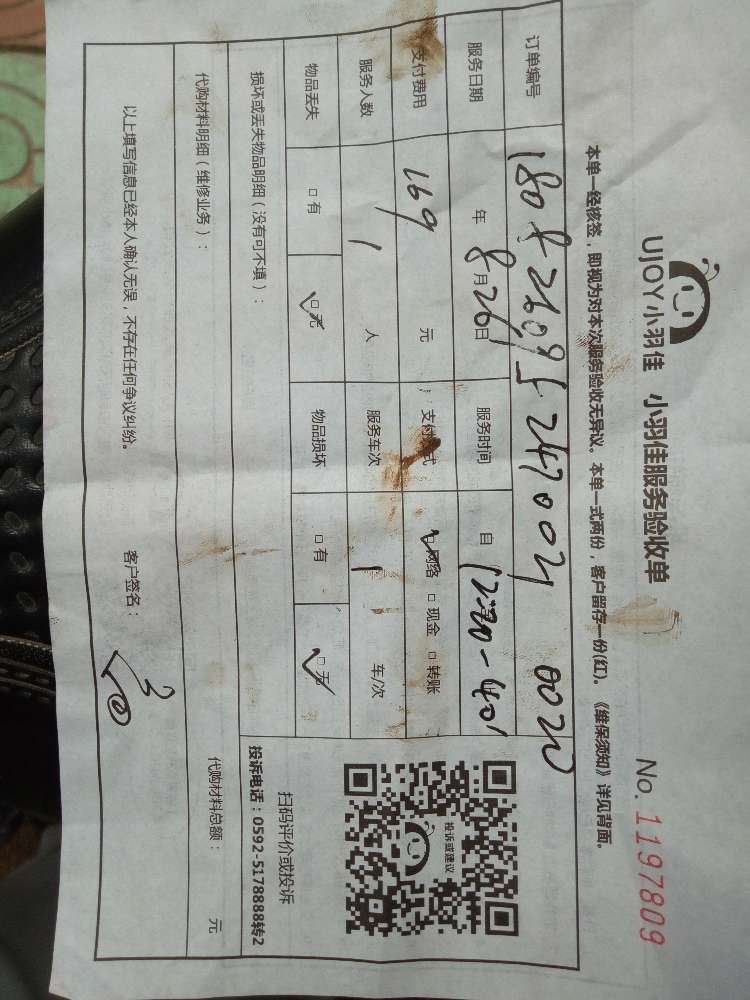 UJOY小羽佳 小羽佳服务验收单
No. 1197809
本单一经核签，即视为对本次服务验收无异议。本单一式两份，客户留存一份(红)。《维保须知》详见背面。
订单编号
服务日期 年 8月26日 服务时间 自
支付费用 169 元 支付方式 网络 □现金 □转账
服务人数 1 人 服务车次 1 车/次
物品丢失 □有 □无 物品损坏 □有 □无
投诉或建议
扫码评价或投诉
投诉电话：0592-5178888转2
损坏或丢失物品明细（没有可不填）：
代购材料明细（维修业务）： 代购材料总额： 元
以上填写信息已经本人确认无误，不存在任何争议纠纷。 客户签名：